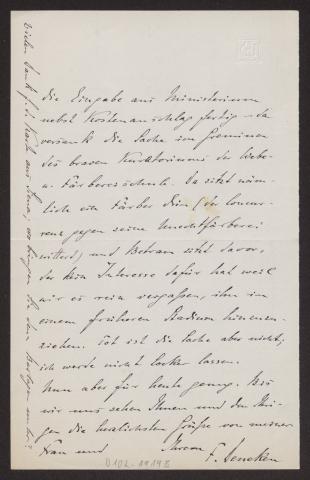 die Eingabe ans Ministerium
nebst Kostenanschlag fertig – da
versank die Sache im Gremium
des braven Kuratoriums der Webe-
u. Färbereischule. Da sitzt näm-
lich ein Färber drin (der Concur-
renz gegen seine Knechtfärberei
wittert) und Betram sitzt davor,
der kein Interesse dafür hat weil
wir es rein vergaßen, ihn in
einem früheren Stadium hineinzu-
ziehen. Tot ist die Sache aber nicht;
ich werde nicht locker lassen.
Nun aber für heute genug. Bis
wir uns sehen Ihnen und den Ihri-
gen die herzlichsten Grüße von meiner
Frau und Ihrem
F. Deneken
Vielen Dank f. d. Karte aus Jena, wo bringen Sie den
0102-1919 B